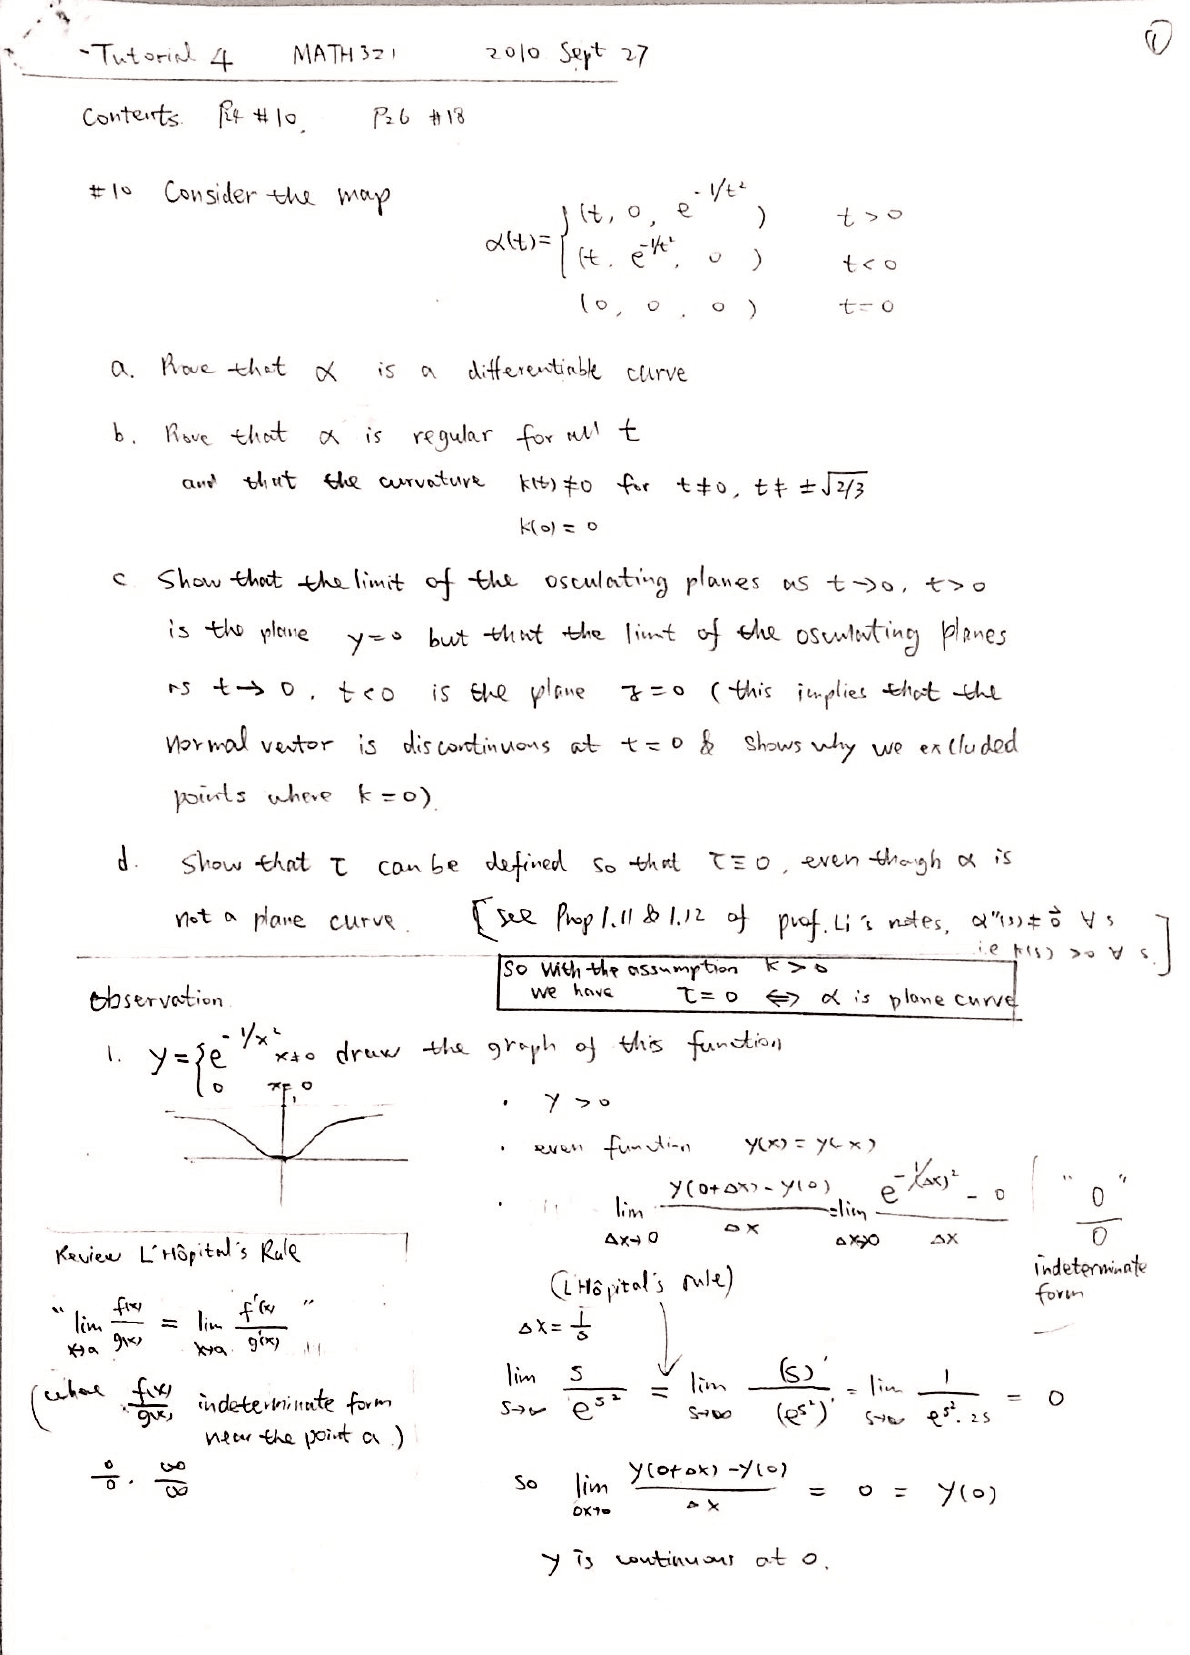 ①
- Tutorial 4 MATH 321 2010 Sept 27
Contents. P24 #10, P26 #18
#10 Consider the map
α(t) = { (t, 0, e^{-1/t²}) t>0
(t, e^{-1/t²}, 0) t<0
(0, 0, 0) t=0
a. Prove that α is a differentiable curve
b. Prove that α is regular for all t
and that the curvature k(t)≠0 for t≠0, t≠ ±√2/3
k(0) = 0
c. Show that the limit of the osculating planes as t→0, t>0
is the plane y=0 but that the limit of the osculating planes
as t→0, t<0 is the plane z=0 (this implies that the
normal vector is discontinuous at t=0 & shows why we excluded
points where k=0).
d. Show that τ can be defined so that τ≡0, even though α is
not a plane curve. [see Prop 1.11 & 1.12 of prof. Li's notes, α''(s)≠0⃗ ∀s
i.e k(s) >0 ∀ s.]
So with the assumption k>0
we have τ=0 ⇔ α is plane curve
Observation
1. y = { e^{-1/x²} x≠0 draw the graph of this function
0 x=0
1
· y >0
· even function y(x) = y(-x)
· lim_{Δx→0} (y(0+Δx)-y(0))/Δx = lim_{Δx→0} (e^{-1/(Δx)²} - 0)/Δx "0/0"
indeterminate
form
Review L'Hôpital's Rule
"lim_{x→a} f(x)/g(x) = lim_{x→a} f'(x)/g'(x)"
(where f(x)/g(x) indeterminate form
near the point a.)
0/0. ∞/∞
(L'Hôpital's rule)
Δx = 1/s
lim_{s→∞} s/e^{s²} = lim_{s→∞} (s)'/(e^{s²})' = lim_{s→∞} 1/(e^{s²}·2s) = 0
so lim_{Δx→0} (y(0+Δx)-y(0))/Δx = 0 = y(0)
y is continuous at 0.